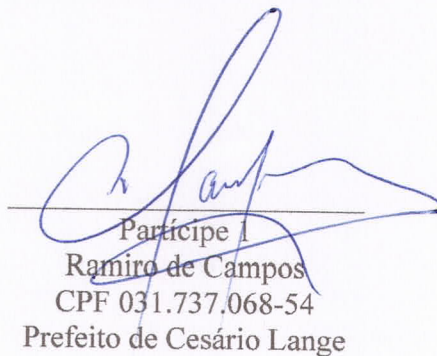 Partícipe 1
Ramiro de Campos
CPF 031.737.068-54
Prefeito de Cesário Lange